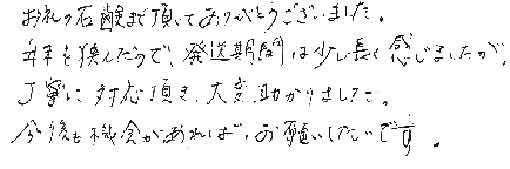 お礼の石鹸まで頂いてありがとうございました。
年末を挟んだので、発送期間は少し長く感じましたが、
丁寧に対応頂き、大変助かりました。
今後も機会があれば、お願いしたいです。